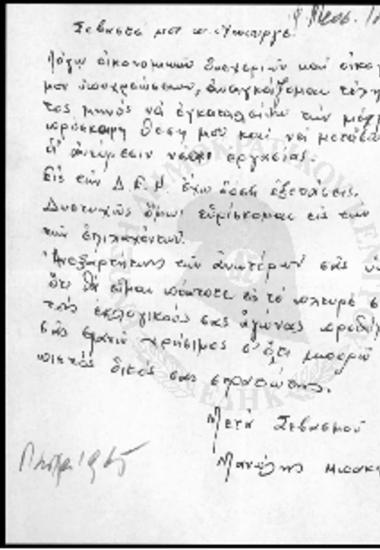 Σεβαστέ μου κ. Υπουργέ
Λόγω οικονομικών δυσχεριών και οικογ
μου υποχρεώσεων, αναγκάζομαι
τος μηνός να εγκαταλείψω την μέχρ
πρόσκαιρη θέση μου και να μεταβώ
δι' ανεύρεσιν νέας εργασίας.
Εις την Δ.Ε.Η. έχω δώση εξετάσεις.
Δυστυχώς όμως ευρίσκομαι εις την
των επιλαχόντων.
Ανεξαρτήτως των ανωτέρων σας
ότι θα είμαι πάντοτε εις το πλευρό σ
τους εκλογικούς σας αγώνας
σας φανώ χρήσιμος σ' ότι μπορώ
πιστός δικός σας στρατιώτης.
Μετά Σεβασμού
Μανώλης